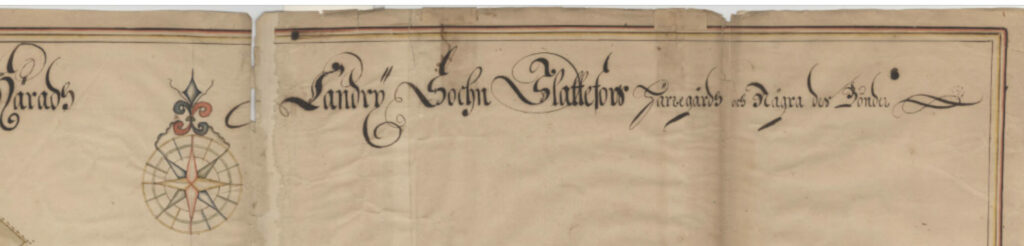 Häradh Landrÿ Sochn Slattefors Härregårdh och Några des Bönder